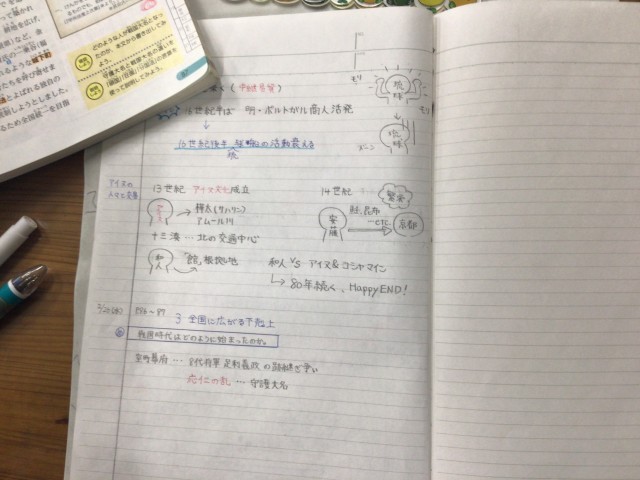 どのような人が戦国大名となっ
たのか、本文から書き出してみ
よう。
97
(中継貿易)
16世紀半ば 明・ポルトガル商人活発
↓
16世紀後半 琉球の活動衰える
モリ
琉球
モリ
琉球
アイヌの
人々と交易
13世紀 アイヌ文化成立
→樺太(サハリン)
アムール川
十三湊…北の交通中心
和人
「館」根拠地
14世紀
繁栄
安藤
鮭、昆布
…etc.
京都
和人 VS アイヌ&コシャマイン
↳80年続く、HappyEND!
P86~87
3 全国に広がる下剋上
戦国時代はどのように始まったのか。
室町幕府…8代将軍 足利義政の跡継ぎ争い
応仁の乱…守護大名